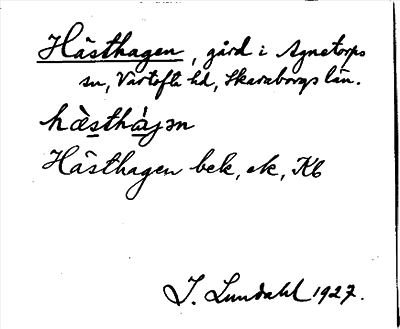 Hästhagen, gård i Agnetorps
sn, Vartofta hd, Skaraborgs län.
hàsthàjən
Hästhagen bek, ek, Kb
I. Lundahl 1927.